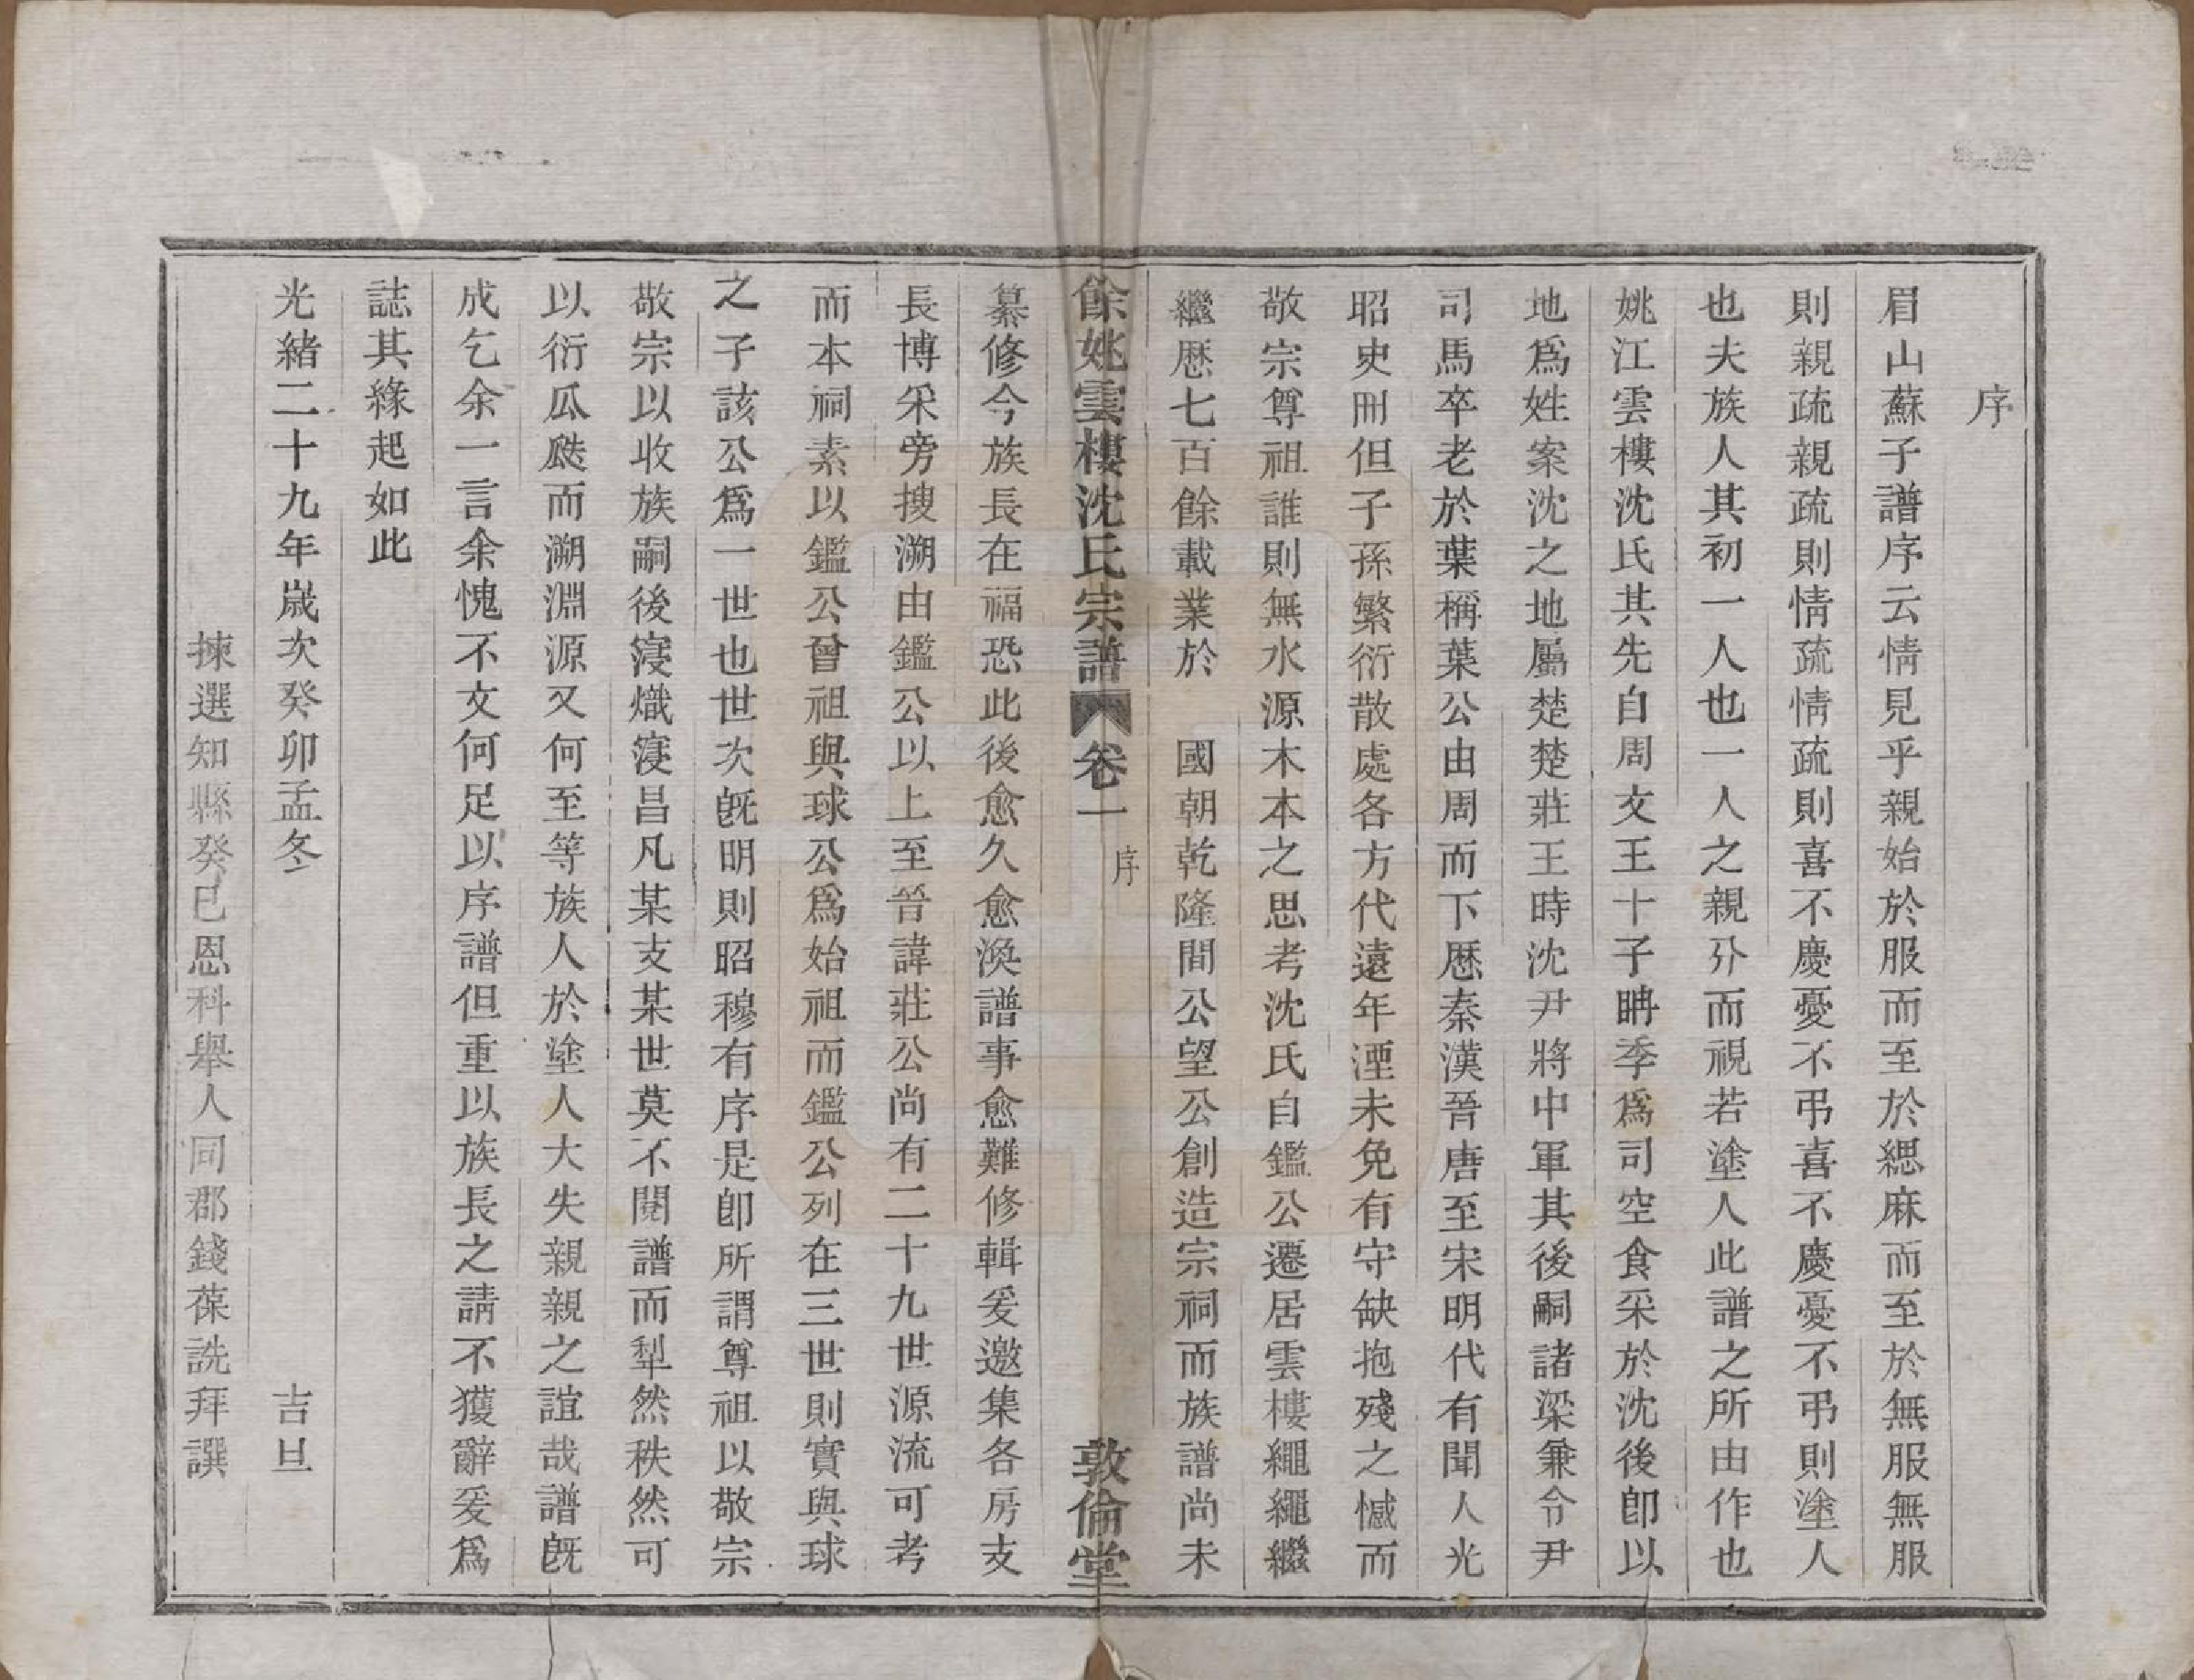 序
眉山蘇子譜序云情見乎親始於服而至於緦麻而至於無服無服
則親疏親疏則情疏情疏則喜不慶憂不弔喜不慶憂不弔則塗人
也夫族人其初一人也一人之親分而視若塗人此譜之所由作也
姚江雲樓沈氏其先自周文王十子聃季爲司空食采於沈後卽以
地爲姓案沈之地屬楚楚莊王時沈尹將中軍其後嗣諸梁兼令尹
司馬卒老於葉稱葉公由周而下歷秦漢晉唐至宋明代有聞人光
昭史冊但子孫繁衍散處各方代遠年湮未免有守缺抱殘之憾而
敬宗尊祖誰則無水源木本之思考沈氏自鑑公遷居雲樓繩繩繼
繼歷七百餘載業於 國朝乾隆間公望公創造宗祠而族譜尚未
餘姚雲樓沈氏宗譜 卷一 序 敦倫堂
纂修今族長在福恐此後愈久愈渙譜事愈難修輯爰邀集各房支
長博采旁搜溯由鑑公以上至晉諱莊公尚有二十九世源流可考
而本祠素以鑑公曾祖與球公爲始祖而鑑公列在三世則實與球
之子該公爲一世也世次旣明則昭穆有序是卽所謂尊祖以敬宗
敬宗以收族嗣後寖熾寖昌凡某支某世莫不閱譜而犁然秩然可
以衍瓜瓞而溯淵源又何至等族人於塗人大失親親之誼哉譜旣
成乞余一言余愧不文何足以序譜但重以族長之請不獲辭爰爲
誌其緣起如此
光緒二十九年歲次癸卯孟冬 吉旦
揀選知縣癸巳恩科舉人同郡錢葆詵拜譔